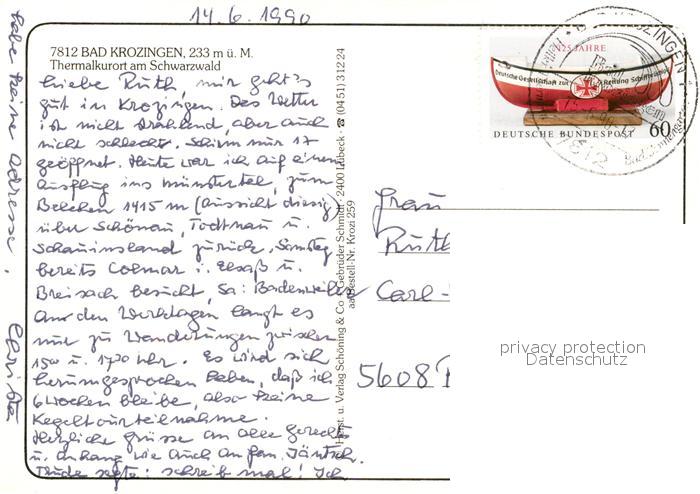 14.6.1990
7812 BAD KROZINGEN, 233 m ü. M.
Thermalkurort am Schwarzwald
Liebe Ruth, mir geht's
gut in Krozingen. Das Wetter
ist nicht strahlend, aber auch
nicht schlecht. Schirm nur 1x
geöffnet. Heute war ich auf einem
Ausflug ins Münstertal, zum
Belchen 1415 m (Aussicht diesig)
über Schönau, Todtnau u.
Schauinsland zurück. Samstag
bereits Colmar i. Elsaß u.
Breisach besucht, Sa: Badenweiler
An den Werktagen langt es
nur zu Wanderungen zwischen
15⁰⁰ u. 17⁰⁰ Uhr. Es wird sich
herumgesprochen haben, daß ich
6 Wochen bleibe, also keine
Kegeltourteilnahme.
Herzliche Grüsse an alle
u. Anhang wie auch an Fam. Jäntsch.
Trude sagte: schreib mal! Ich
habe keine Adresse.
Christa
Horst u. Verlag Schöning & Co + Gebrüder Schmidt · 2400 Lübeck · ☎ (04 51) 3 12 24
Bestell-Nr. Krozi 259
125 JAHRE
Deutsche Gesellschaft zur Rettung Schiffbrüchiger
DEUTSCHE BUNDESPOST 60
7812
Frau
Ruth
Carl-
5608
privacy protection
Datenschutz